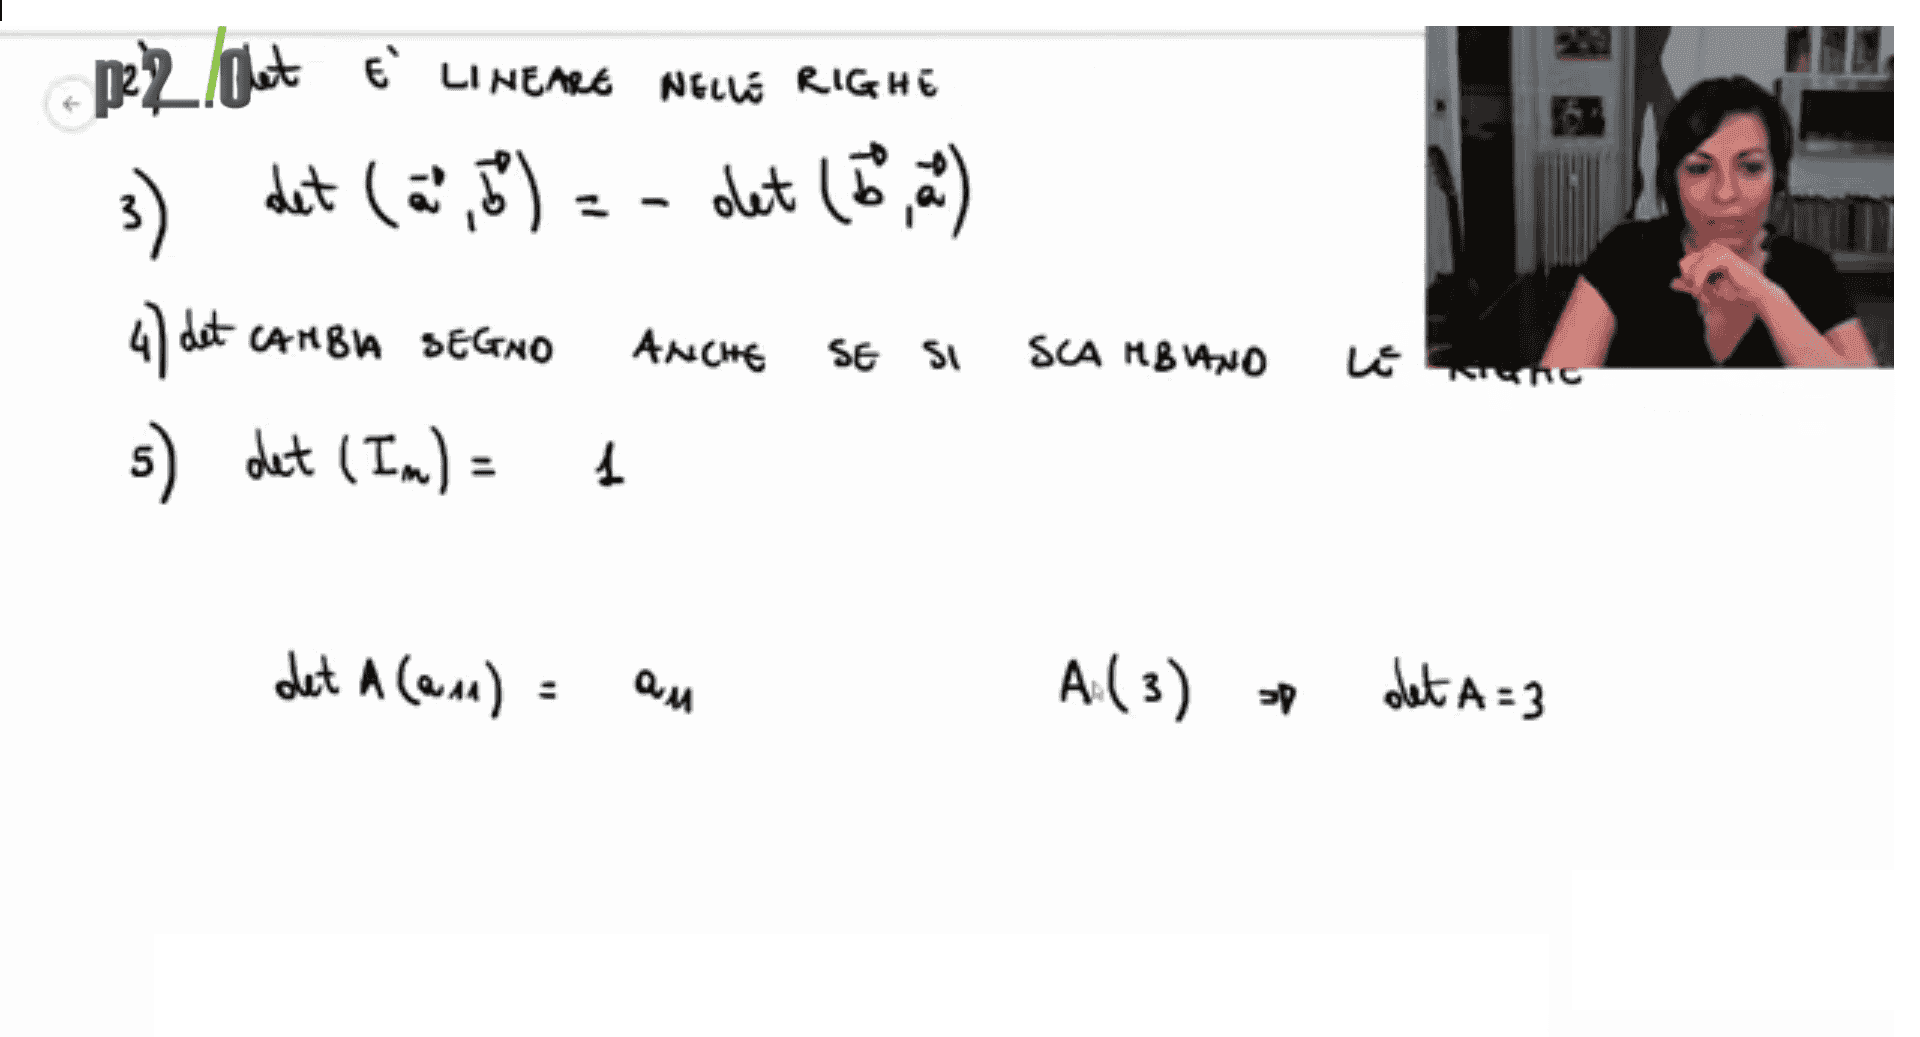 2) det E' LINEARE NELLE RIGHE
3) det (a⃗, b⃗) = - det (b⃗, a⃗)
4) det CAMBIA SEGNO ANCHE SE SI SCAMBIANO LE RIGHE
5) det (Im) = 1
det A (a11) = a11 A (3) ⇒ det A = 3